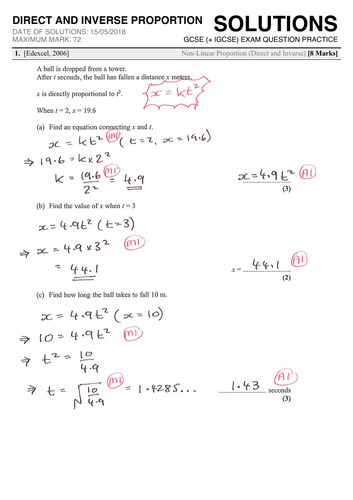 DIRECT AND INVERSE PROPORTION SOLUTIONS
DATE OF SOLUTIONS: 15/05/2018
MAXIMUM MARK: 72
GCSE (+ IGCSE) EXAM QUESTION PRACTICE
1. [Edexcel, 2006] Non-Linear Proportion (Direct and Inverse) [8 Marks]
A ball is dropped from a tower.
After t seconds, the ball has fallen a distance x metres.
x is directly proportional to t².
x = kt²
When t = 2, x = 19.6
(a) Find an equation connecting x and t.
x = kt² (M1) (t=2, x=19.6)
⇒ 19.6 = k×2²
k = 19.6/2² (M1) = 4.9
x = 4.9t² (A1)
(3)
(b) Find the value of x when t = 3
x = 4.9t² (t=3)
⇒ x = 4.9 × 3² (M1)
= 44.1
x = 44.1 (A1)
(2)
(c) Find how long the ball takes to fall 10 m.
x = 4.9t² (x=10)
⇒ 10 = 4.9t² (M1)
⇒ t² = 10/4.9
⇒ t = √(10/4.9) (M1) = 1.4285...
1.43 (A1) seconds
(3)